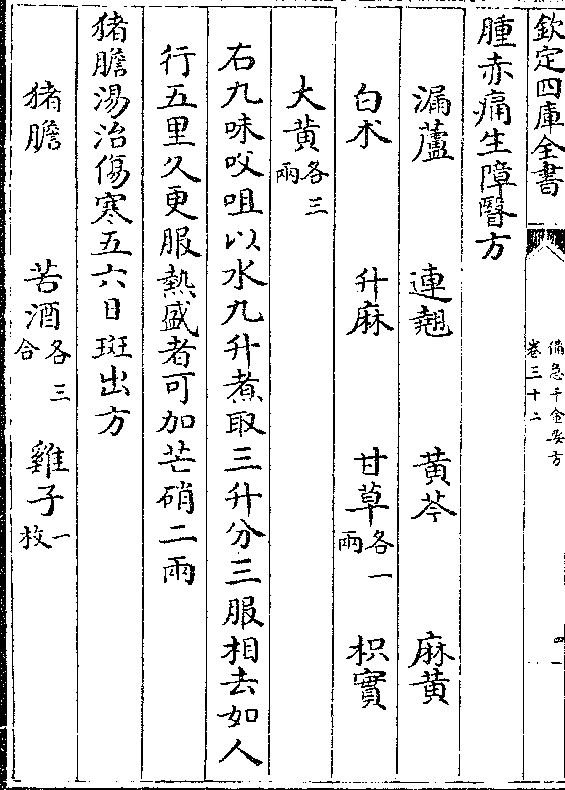 欽定四庫全書
備急千金要方
卷三十二
四
腫赤痛生障翳方
漏蘆 連翹 黃芩 麻黃
白朮 升麻 甘草各一兩 枳實
大黃各三兩
右九味㕮咀以水九升煮取三升分三服相去如人
行五里久更服熱盛者可加芒硝二兩
猪膽湯治傷寒五六日斑出方
猪膽 苦酒各三合 雞子一枚